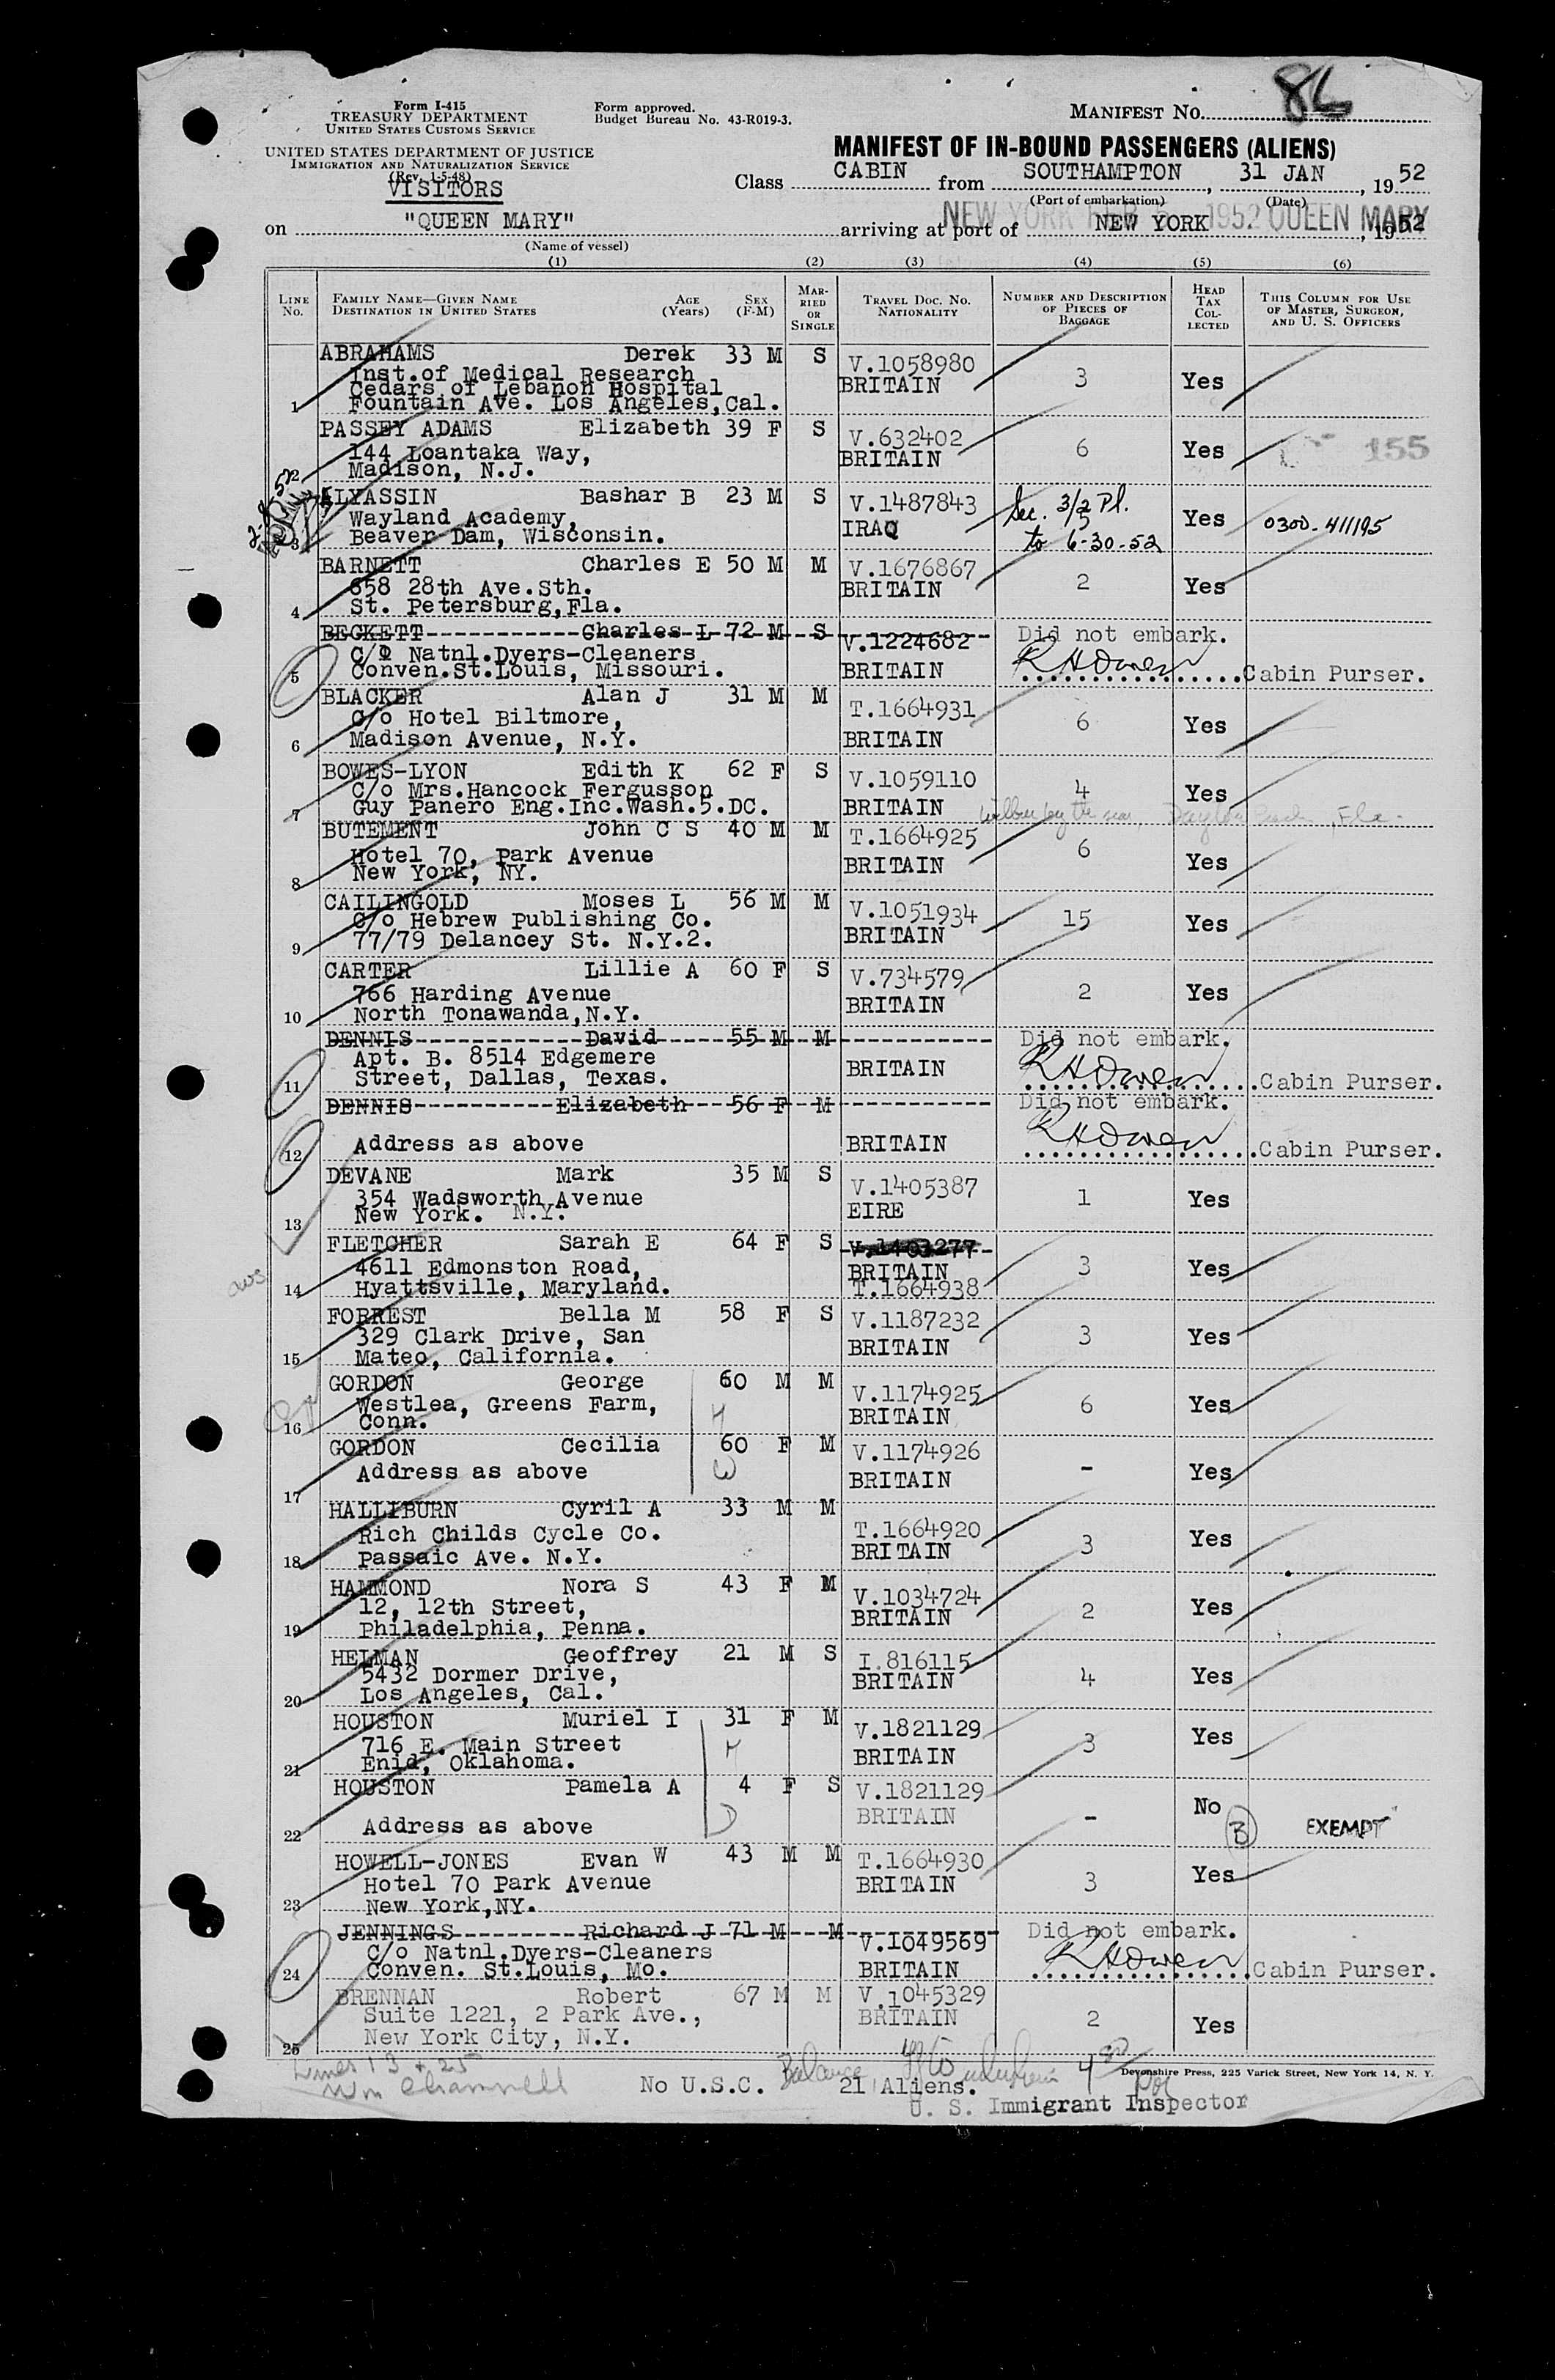 Form I-415
TREASURY DEPARTMENT
UNITED STATES CUSTOMS SERVICE
UNITED STATES DEPARTMENT OF JUSTICE
IMMIGRATION AND NATURALIZATION SERVICE
(Rev. 1-5-48)
VISITORS
Form approved.
Budget Bureau No. 43-R019-3.
MANIFEST No. 86
MANIFEST OF IN-BOUND PASSENGERS (ALIENS)
Class CABIN from SOUTHAMPTON, 31 JAN, 1952
(Port of embarkation) (Date)
on "QUEEN MARY" arriving at port of NEW YORK, 1952
(Name of vessel)
NEW YORK FEB 6 1952 QUEEN MARY
(1) (2) (3) (4) (5) (6)
LINE No. FAMILY NAME—GIVEN NAME DESTINATION IN UNITED STATES AGE (Years) SEX (F-M) MARRIED OR SINGLE TRAVEL DOC. NO. NATIONALITY NUMBER AND DESCRIPTION OF PIECES OF BAGGAGE HEAD TAX COLLECTED THIS COLUMN FOR USE OF MASTER, SURGEON, AND U. S. OFFICERS
ABRAHAMS Derek 33 M S V.1058980
Inst.of Medical Research BRITAIN 3 Yes
Cedars of Lebanon Hospital
1 Fountain Ave. Los Angeles,Cal.
PASSEY ADAMS Elizabeth 39 F S V.632402
144 Loantaka Way, BRITAIN 6 Yes 155
2 Madison, N.J.
ALYASSIN Bashar B 23 M S V.1487843 Sec. 3/2 Pl.
Wayland Academy, IRAQ Yes 0300-411195
3 Beaver Dam, Wisconsin. to 6-30-52
BARNETT Charles E 50 M M V.1676867
658 28th Ave.Sth. BRITAIN 2 Yes
4 St. Petersburg,Fla.
BECKETT Charles L 72 M S V.1224682 Did not embark.
C/O Natnl.Dyers-Cleaners RHOwen
5 Conven.St.Louis, Missouri. BRITAIN Cabin Purser.
BLACKER Alan J 31 M M T.1664931
C/o Hotel Biltmore, 6 Yes
6 Madison Avenue, N.Y. BRITAIN
BOWES-LYON Edith K 62 F S V.1059110
C/o Mrs.Hancock Fergusson 4 Yes
7 Guy Panero Eng.Inc.Wash.5.DC. BRITAIN
Wilbur by the sea, Daytona Beach, Fla.
BUTEMENT John C S 40 M M T.1664925
Hotel 70, Park Avenue BRITAIN 6 Yes
8 New York, NY.
CAILINGOLD Moses L 56 M M V.1051934
C/o Hebrew Publishing Co. 15 Yes
9 77/79 Delancey St. N.Y.2. BRITAIN
CARTER Lillie A 60 F S V.734579
766 Harding Avenue 2 Yes
10 North Tonawanda,N.Y. BRITAIN
DENNIS David 55 M M Did not embark.
Apt. B. 8514 Edgemere RHOwen
11 Street, Dallas, Texas. BRITAIN Cabin Purser.
DENNIS Elizabeth 56 F M Did not embark.
RHOwen
12 Address as above BRITAIN Cabin Purser.
DEVANE Mark 35 M S V.1405387
354 Wadsworth Avenue 1 Yes
13 New York. N.Y. EIRE
FLETCHER Sarah E 64 F S V.1403277
4611 Edmonston Road, BRITAIN 3 Yes
14 Hyattsville, Maryland. T.1664938
FORREST Bella M 58 F S V.1187232
329 Clark Drive, San 3 Yes
15 Mateo, California. BRITAIN
GORDON George 60 M M V.1174925
Westlea, Greens Farm, H BRITAIN 6 Yes
16 Conn.
GORDON Cecilia 60 F M V.1174926
Address as above W BRITAIN - Yes
17
HALLIBURN Cyril A 33 M M T.1664920
Rich Childs Cycle Co. 3 Yes
18 Passaic Ave. N.Y. BRITAIN
HAMMOND Nora S 43 F M V.1034724
12, 12th Street, BRITAIN 2 Yes
19 Philadelphia, Penna.
HELMAN Geoffrey 21 M S I.816115
5432 Dormer Drive, BRITAIN 4 Yes
20 Los Angeles, Cal.
HOUSTON Muriel I 31 F M V.1821129
716 E. Main Street 3 Yes
21 Enid, Oklahoma. BRITAIN
HOUSTON Pamela A 4 F S V.1821129
BRITAIN - No
22 Address as above D B EXEMPT
HOWELL-JONES Evan W 43 M M T.1664930
Hotel 70 Park Avenue BRITAIN 3 Yes
23 New York,NY.
JENNINGS Richard J 71 M M V.1049569 Did not embark.
C/o Natnl.Dyers-Cleaners RHOwen
24 Conven. St.Louis, Mo. BRITAIN Cabin Purser.
BRENNAN Robert 67 M M V.1045329
Suite 1221, 2 Park Ave., BRITAIN 2 Yes
25 New York City, N.Y.
Lines 13 + 25
Wm Channell
No U.S.C. Balance 21 Aliens.
Devonshire Press, 225 Varick Street, New York 14, N. Y.
U. S. Immigrant Inspector